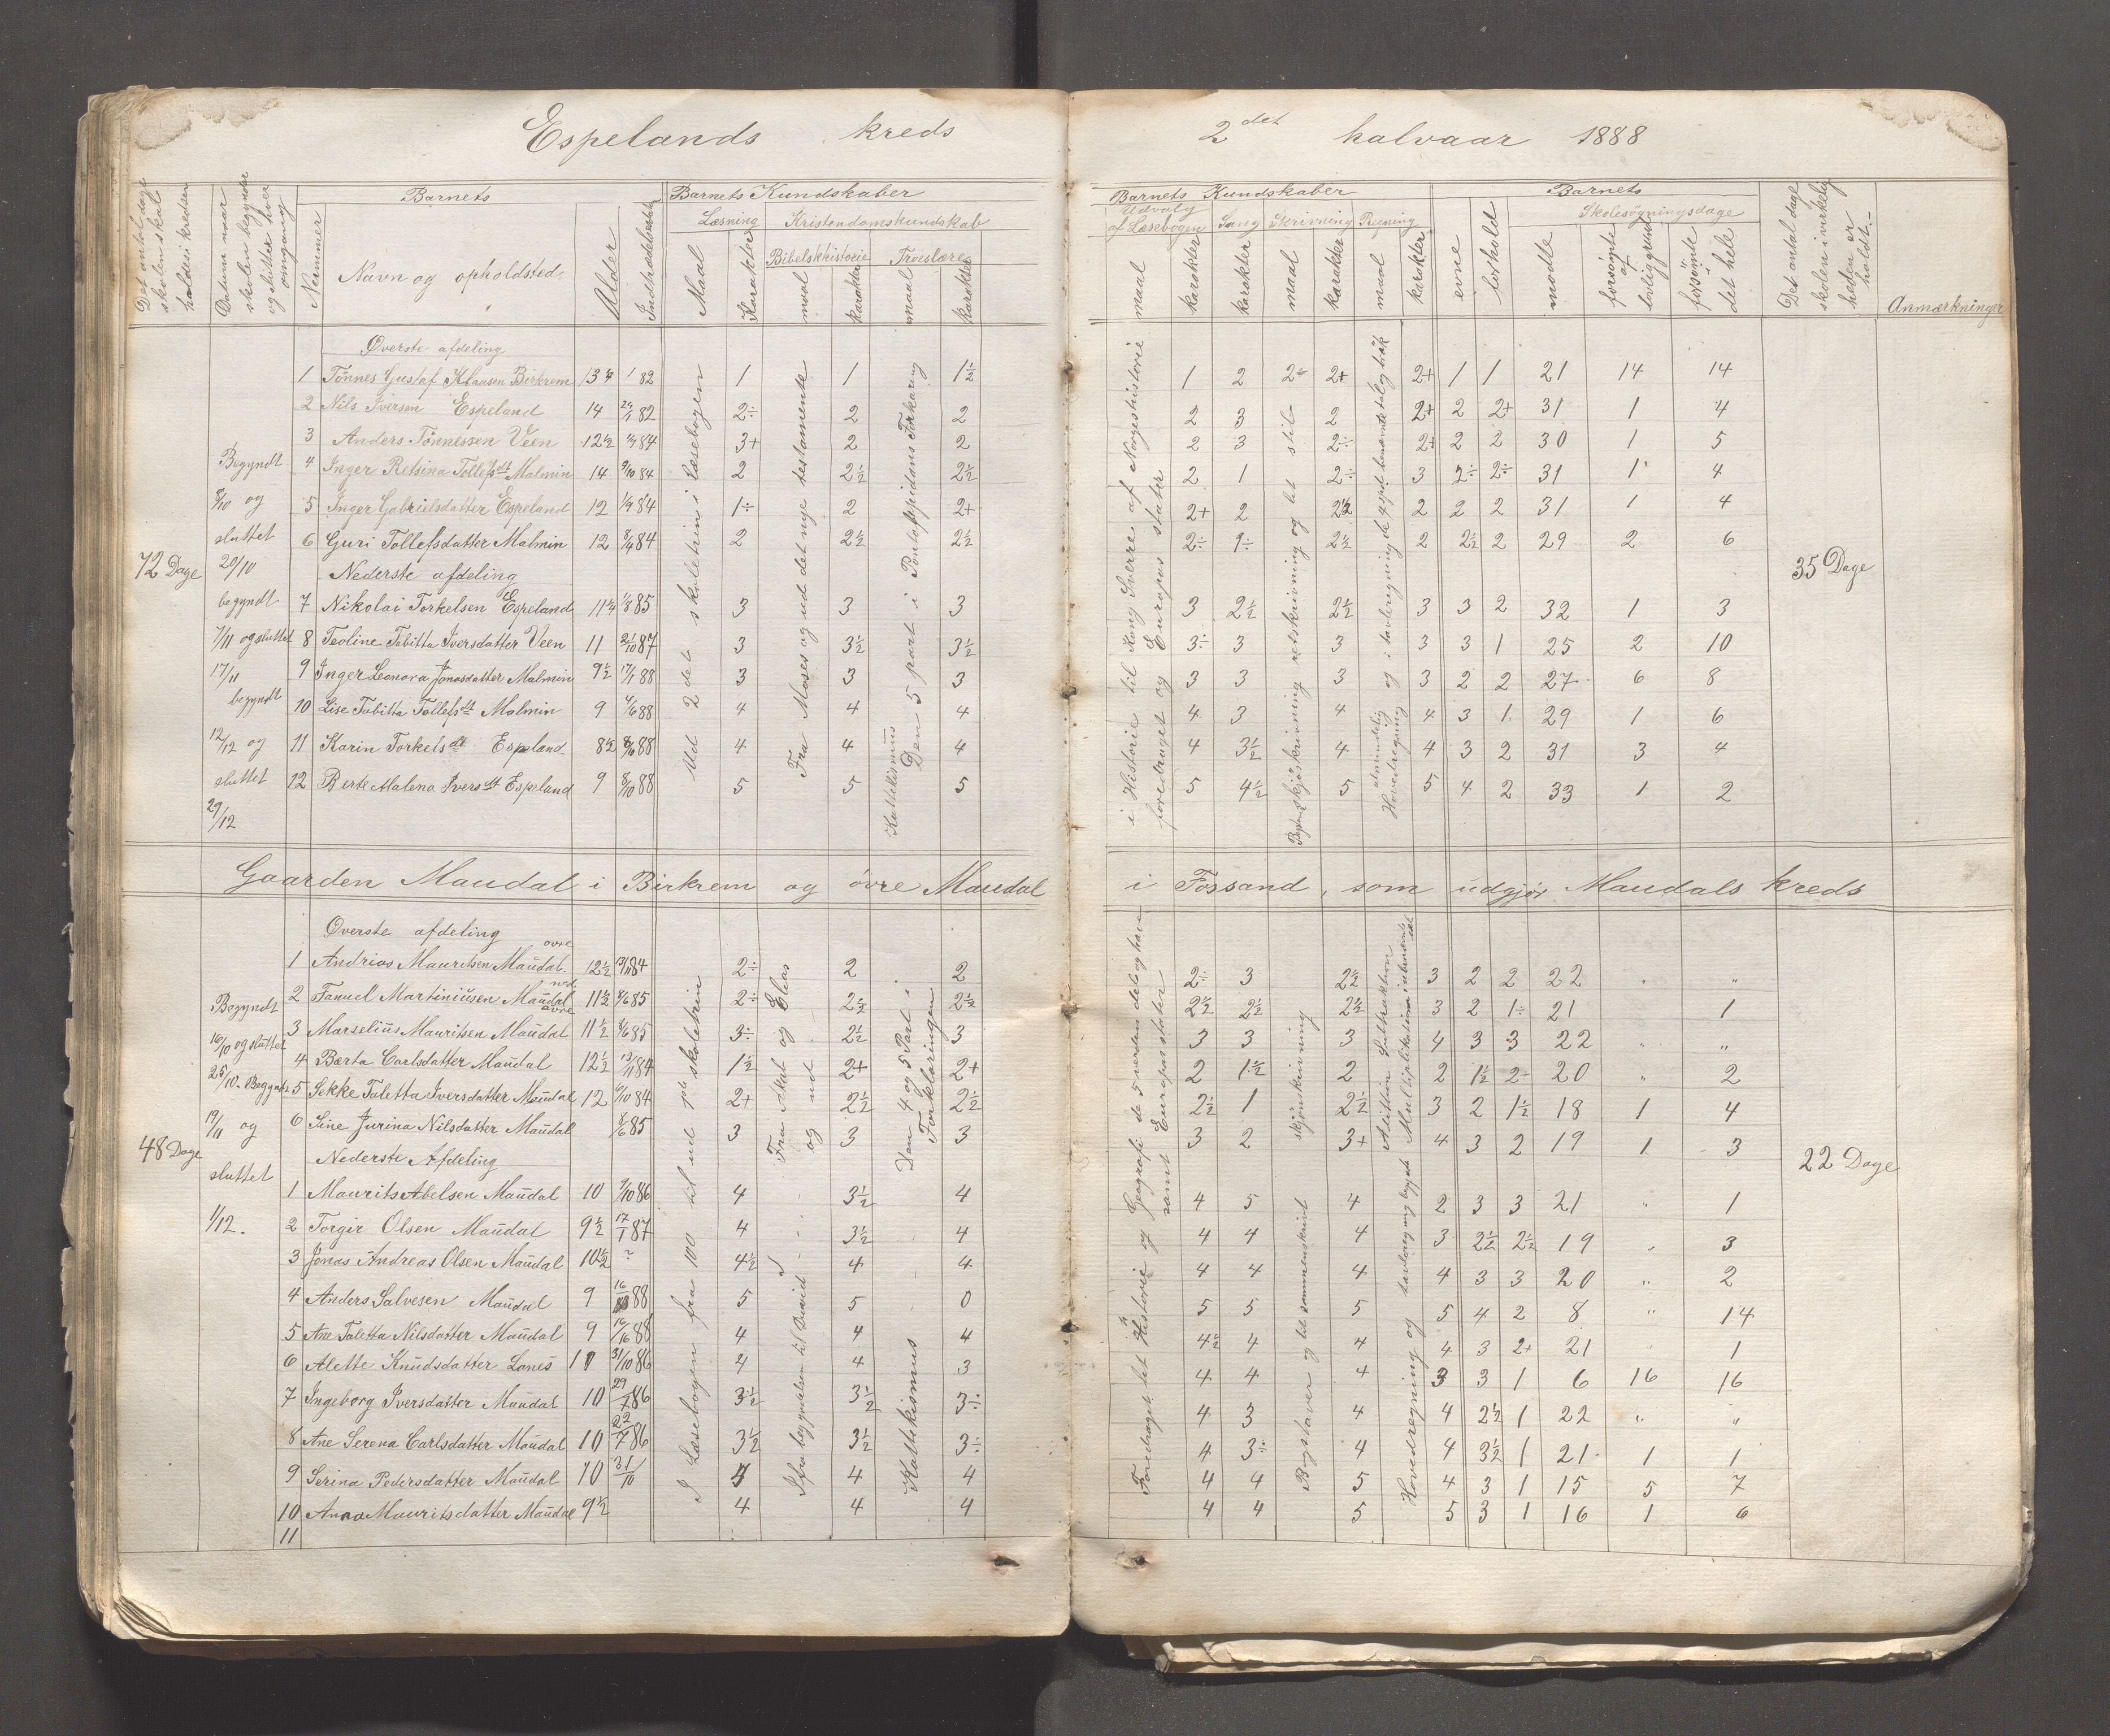 Espelands kreds 2det halvaar 1888
Det antal dage skolen skal holdes i kredsen
Datum naar skolen begynder og slutter hver omgang
Barnets
Nummer
Navn og opholdsted
Alder
Indtrædelsestid
Barnets Kundskaber
Læsning
Kristendomskundskab
Maal
Karakter
Bibelshistorie
Troeslære
maal
karakter
maal
karakter
Barnets Kundskaber
Udvalg af Læsebogen
Sang
Skrivning
Regning
maal
karakter
karakter
maal
karakter
maal
karakter
Barnets
evne
forhold
Skolesøgningsdage
mødte
forsømte af lovlig grund
forsømte det hele
Det antal dage skolen i virkeligheden er holdt
Anmærkninger
72 Dage
Begyndt 8/10 og sluttet 20/10 begyndt 7/11 og sluttet 17/11 begyndt 12/12 og sluttet 29/12
Øverste afdeling
1 Tönnes Gustaf Klausen Birkrem 13 1/82 1 1 1½ 1 2 2+ 2+ 2+ 1 1 21 14 14
2 Nils Iversen Espeland 14 82 2÷ 2 2 2 3 2 2+ 2 2+ 31 1 4
3 Anders Tönnessen Veen 12½ 84 3+ 2 2 2 3 2÷ 2+ 2 2 30 1 5
4 Inger Retsina Tollefsdt Malmin 14 9/10 84 2 2½ 2½ 2 1 2÷ 3 2÷ 2÷ 31 1 4
5 Inger Gabrielsdatter Espeland 12 1/9 84 1÷ 2 2+ 2+ 2 2½ 2 2 2 31 1 4
6 Guri Tollefsdatter Malmin 12 84 2 2½ 2½ 2÷ 1÷ 2½ 2 2½ 2 29 2 6
Nederste afdeling
7 Nikolai Torkelsen Espeland 11¼ 1/8 85 3 3 3 3 2½ 2½ 3 3 2 32 1 3
8 Teoline Tobitta Iversdatter Veen 11 2/10 87 3 3½ 3½ 3÷ 3 3 3 3 1 25 2 10
9 Inger Leonora Jonasdatter Malmin 9½ 17/1 88 3 3 3 3 3 3 3 2 2 27 6 8
10 Lise Tobitta Tollefsdt Malmin 9 4/6 88 4 4 4 4 3 4 4 3 1 29 1 6
11 Karin Torkelsdt Espeland 8½ 88 4 4 4 4 3½ 4 4 3 2 31 3 4
12 Berte Malena Iversdt Espeland 9 8/10 88 5 5 5 5 4½ 5 5 4 2 33 1 2
Ud 2det skoletrin i Læsebogen
Fra Moses og ud det nye testamente
Katekismus Den 5 part i Pontoppidans Forklaring
i Historie til Kong Sverre af Norgeshistorie foredraget og Europas stater
skjønskrivning retskrivning og let stil
almindelig Hovedregning og i tavleregning de 4 spd. benævnte tal og brøk
35 Dage
Gaarden Maudal i Birkrem og øvre Maudal i Fossand, som udgjør Maudals kreds
48 Dage
Begyndt 16/10 og sluttet 25/10. Begyndt 19/11 og sluttet 1/12.
Øverste afdeling
1 Andrias Mauritsen Maudal øvre 12½ 13/11 84 2÷ 2 2 2÷ 3 2½ 3 2 2 22 " "
2 Tanuel Martiniusen Maudal ned 11½ 8/6 85 2÷ 2½ 2½ 2½ 2½ 2½ 3 2 1÷ 21 1
3 Marselius Mauritsen Maudal øvre 11½ 8/6 85 3÷ 2½ 3 3 3 3 4 3 3 22 " "
4 Bærta Carlsdatter Maudal 12½ 13/11 84 1½ 2+ 2+ 2 1½ 2 2 1½ 2÷ 20 " 2
5 Sekke Taletta Iversdatter Maudal 12 9/10 84 2+ 2½ 2½ 2½ 1 2½ 3 2 1½ 18 1 4
6 Sine Jurina Nilsdatter Maudal 85 3 3 3 3 2 3+ 4 3 2 19 1 3
Nederste Afdeling
1 Maurits Abelsen Maudal 10 9/10 86 4 3½ 4 4 5 4 2 3 3 21 " 1
2 Torgir Olsen Maudal 9½ 17/1 87 4 3½ 4 4 4 4 3 2½ 2½ 19 " 3
3 Jonas Andreas Olsen Maudal 10½ ? 4½ 4 4 4 4 4 4 3 3 20 " 2
4 Anders Salvesen Maudal 9 88 5 5 0 5 5 5 5 4 2 8 " 14
5 Ane Taletta Nilsdatter Maudal 9 88 4 4 4 4½ 4 4 4 3 2+ 21 " 1
6 Alette Knudsdatter Lones 11 31/10 86 4 4 3 4 4 4 3 3 1 6 16 16
7 Ingeborg Iversdatter Maudal 10 86 3½ 3½ 3÷ 4 3 4 4 2½ 1 22 " "
8 Ane Serena Carlsdatter Maudal 10 86 3½ 3½ 3÷ 4 3÷ 4 4 3½ 1 21 1 1
9 Serina Pedersdatter Maudal 10 31/10 4 4 4 4 5 4 3 1 15 5 7
10 Anna Mauritsdatter Maudal 9½ 4 4 4 4 4 5 5 3 1 16 1 6
11
I Læsebogen fra 100 til ud 1ste skoletrin
Fra Akab og Elias og ud
I fra begyndelsen til David
Katekismus
Den 4 og 5 Part i Forklaringen
Foredraget let Historie og Geografi de 5 verdensdele og have samt Europas stater
Bogstaver og let sammenskrivt skjønskrivning
Hovedregning og tavleregning Addition Subtraktion Multiplikation
22 Dage